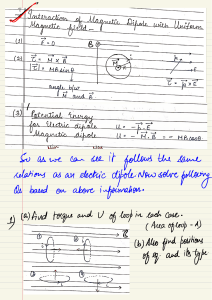 Interaction of Magnetic Dipole with Uniform
Magnetic field -
(1) F = 0 B ⊗
(2) τ⃗ = M⃗ × B⃗
|τ⃗| = MB sinθ
τ⃗ = p⃗ × E⃗
angle b/w
M⃗ and B⃗
(3) Potential Energy
for Electric dipole U = -p⃗.E⃗
Magnetic dipole U = -M⃗.B⃗ = -MB cosθ
So as we can see it follows the same
relations as an electric dipole. Now solve following
Qs based on above information.
1) (a) Find torque and U of loop in each case.
(Area of loop - A)
(b) Also find positions
of eq. and its type